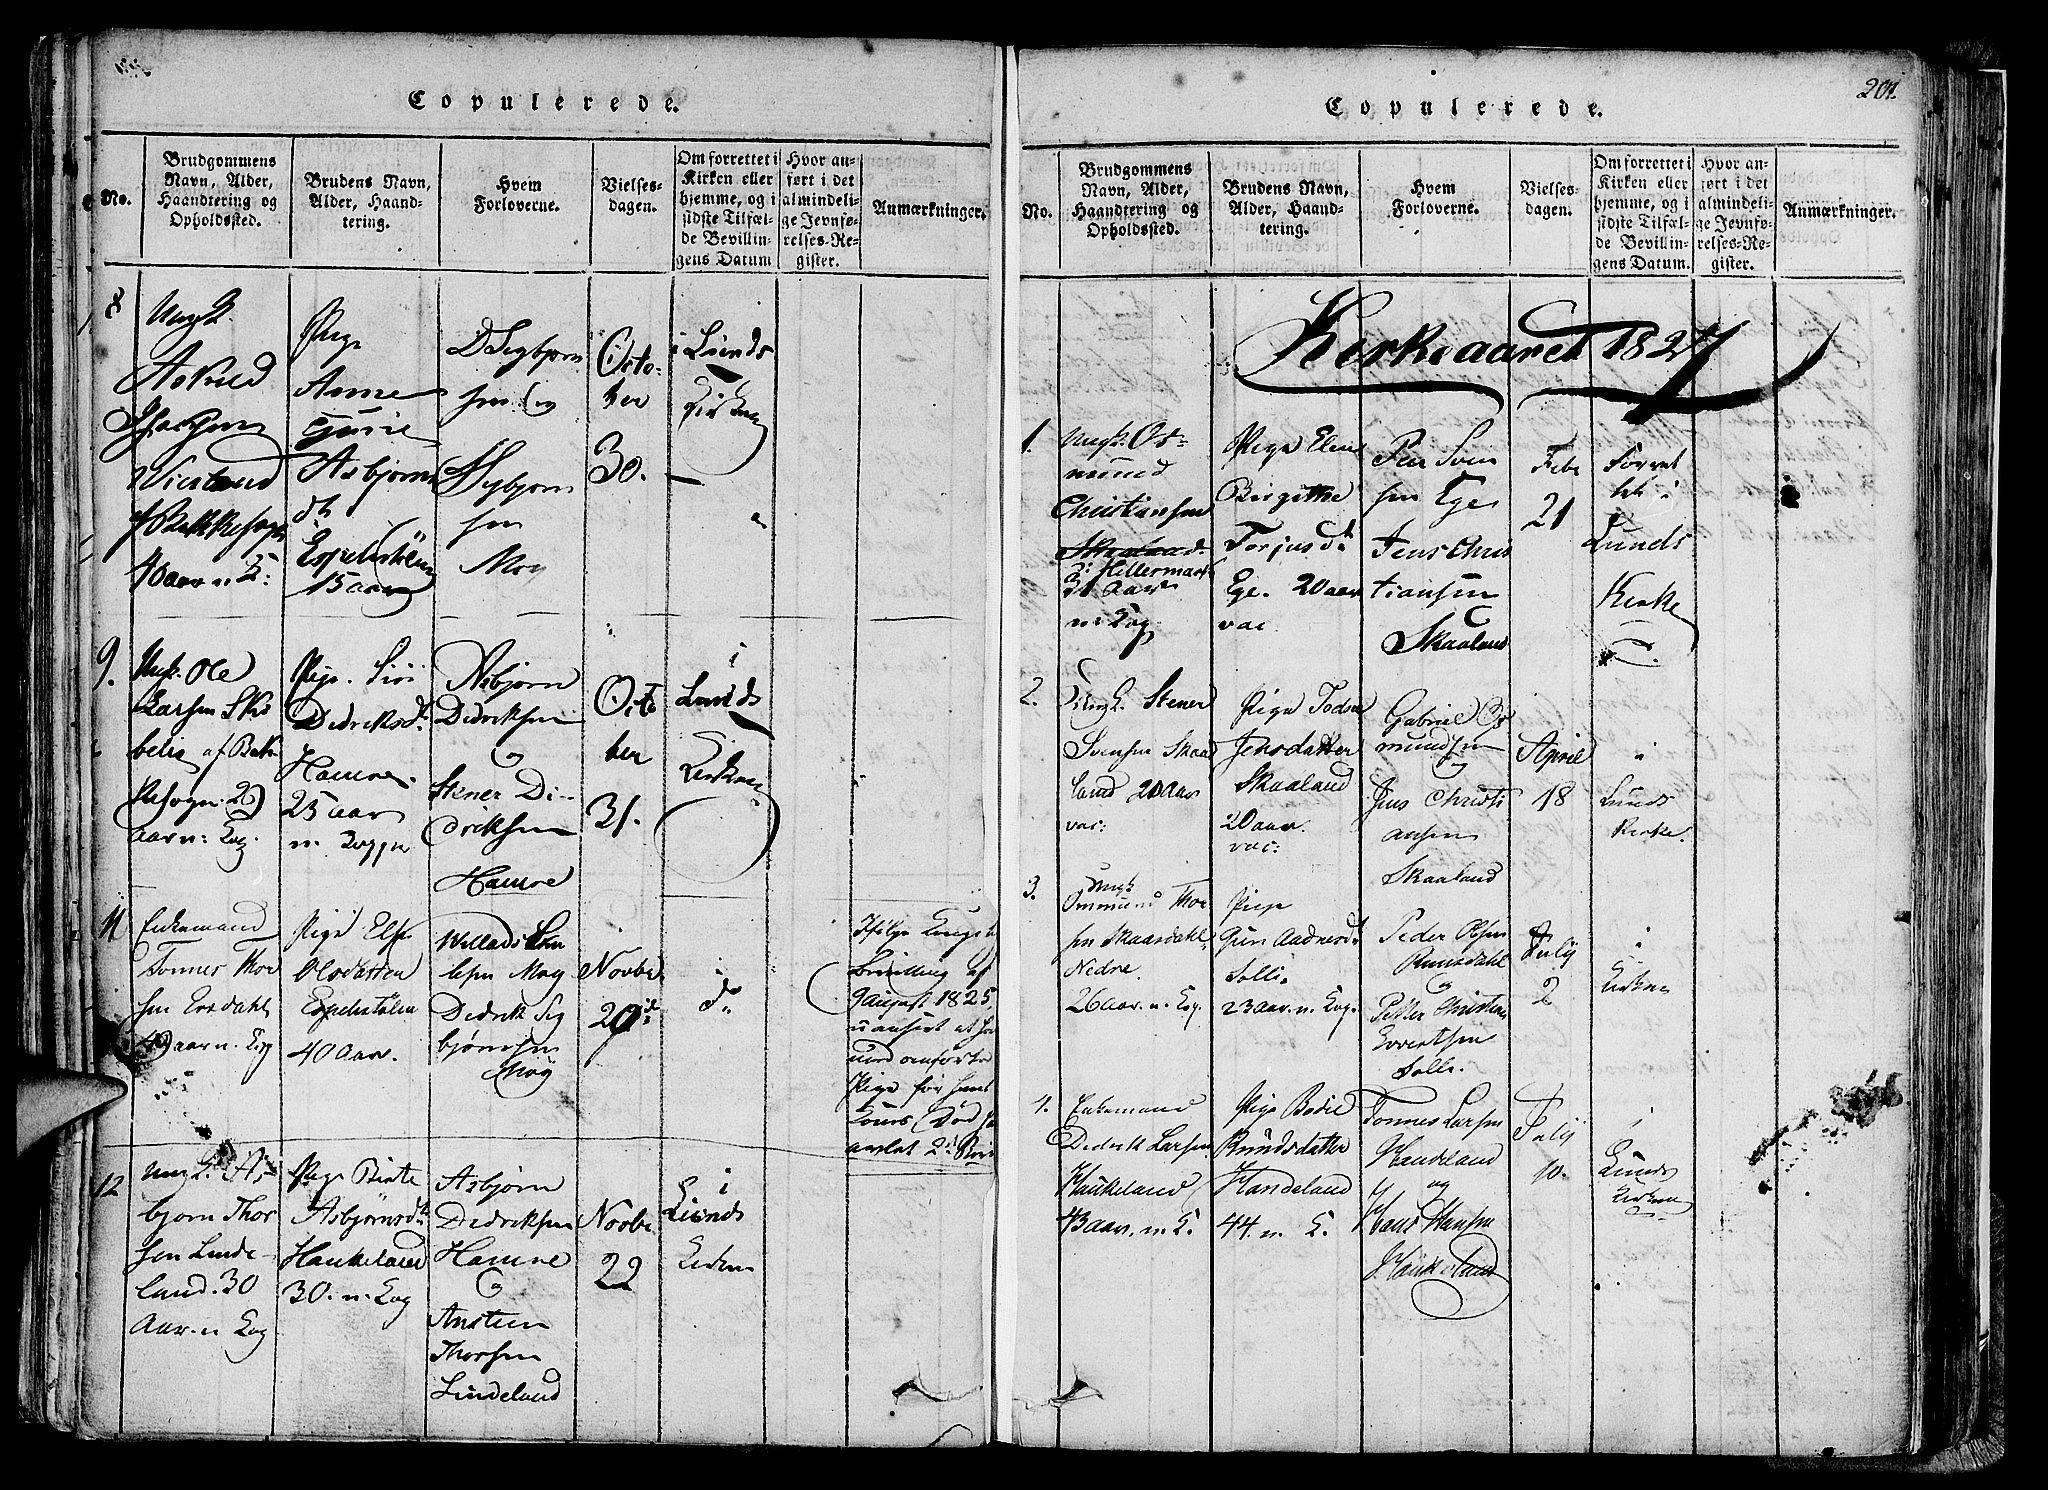 Copulerede.
No.
Brudgommens
Navn, Alder,
Haandtering og
Opholdssted.
Brudens Navn,
Alder, Haand-
tering.
Hvem
Forloverne.
Vielses-
dagen.
Om forrettet i
Kirken eller
hjemme, og i
sidste Tilfæl-
de Bevillin-
gens Datum
Hvor an-
ført i det
almindeli-
ge Jevnfø-
relses-Re-
gister.
Anmærkninger.
8
Ungk.
Askild
Wiestand
af Bakkesogn
40 aar n. K:
Pige
Anne
Gurie
Asbjørns
dt
15 aar
D Sigbjørn
sen og
Sigbjørn
sen
Moy
Octo-
ber
30.
i Lunds
Kirken
9.
Ungk. Ole
Larsen Ski
belig af Bak
kesogn. 29
aar n: Kog.
Pige Siri
Didriksdt
Hamre.
25 aar
n. Kopper
Asbjørn
Didriksen
og
Stener Di-
driksen
Hamre
Octo
ber
31.
i
Lunds
Kirken
11
Enkemand
Tønnes Thor
sen Ersdahl
49 aar n. Kog
Pige Else
Olsdatter
Espetstølen
40 Aar.
Willads Om
Moy
Didrik Sig
bjørnsen
Moy
Novbr
20de
do
Ifølge Kongel
Bevilling af
9 august 1825
uanseet at han
Pige for hans
Kones Død
anslat 2d
12
Ungk. As-
bjørn Thor
sen Linde-
land. 30
Aar. n Kog
Pige Birte
Asbjørnsdt
Haukeland
30. n. Kog
Asbjørn
Didriksen
Hamre
og
Ansteen
Thorsen
Lindeland
Novbr
22
i
Lunds
Kirken
201.
Copulerede.
No.
Brudgommens
Navn, Alder,
Haandtering og
Opholdssted.
Brudens Navn,
Alder, Haand-
tering.
Hvem
Forloverne.
Vielses-
dagen.
Om forrettet i
Kirken eller
hjemme, og i
sidste Tilfæl-
de Bevillin-
gens Datum.
Hvor an-
ført i det
almindeli-
ge Jevnfø-
relses-Re-
gister.
Anmærkninger.
Kirkeaaret 1827
1.
Ungk. Os-
mund
Christiansen
Skaaland
31 Aar
n: Kog
Pige Elen
Birgitte
Torjusdt
Ege. 20 aar
vac.
Peer Sven
sen Ege
Jens Chris
tiansen
Skaaland
Febr
21
Forret
tet i
Lunds
Kirke
2.
Ungk. Stener
Svensen Skaa
land 20 aar
vac:
Pige Todne
Jensdatter
Skaaland
20 aar.
vac:
Gabriel Os
mundsen
og
Jens Christi
ansen
Skaaland
April
18
i
Lunds
Kirke.
3.
Ungk
Ommund Thor
sen Skaardahl
Nedre.
26 aar. n. Kog.
Pige
Guri Aadnesdt
Solli.
23 aar. n. Kog.
Peder Olsen
Ruusdahl
og
Peder Christian
Evertsen
Solli.
July
2
i
Kirken
4.
Enkemand
Didrik Larsen
Haukeland
43 aar. n. K.
Pige Bodil
Knudsdatter
Handeland
44. n. K.
Tønnes Larsen
Handeland
og
Hans Hansen
Haukeland
July
10.
i
Lunds
Kirken